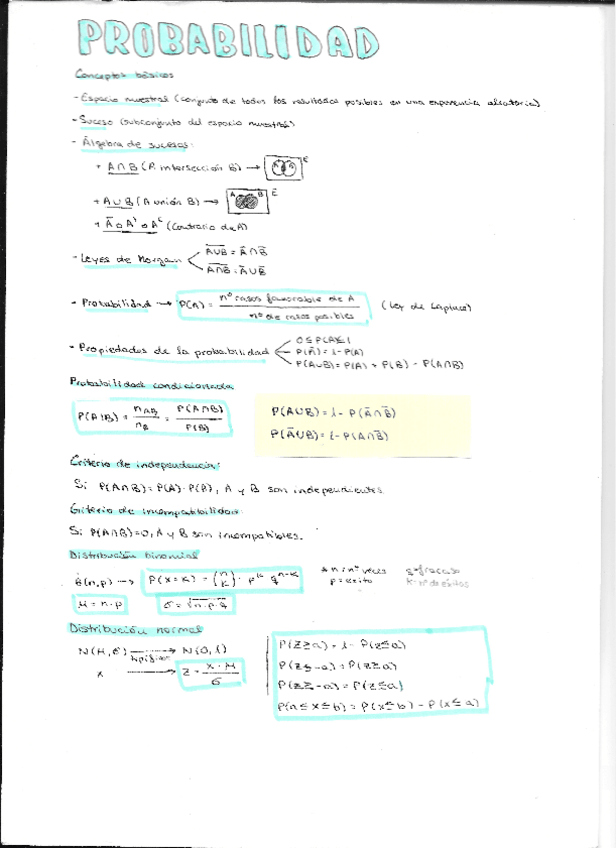 PROBABILIDAD
Conceptos básicos
- Espacio muestral (conjunto de todos los resultados posibles en una experiencia aleatoria).
- Suceso (subconjunto del espacio muestral)
- Álgebra de sucesos:
+ A∩B (A intersección B) → E
+ A∪B (A unión B) → A B E
+ Ā o A' o Aᶜ (Contrario de A)
- Leyes de Morgan
\overline{A∪B} = Ā∩B̄
\overline{A∩B} = Ā∪B̄
- Probabilidad → P(A) = nº casos favorable de A / nº de casos posibles (Ley de Laplace)
- Propiedades de la probabilidad
0 ≤ P(A) ≤ 1
P(Ā) = 1 - P(A)
P(A∪B) = P(A) + P(B) - P(A∩B)
Probabilidad condicionada
P(A|B) = n_{AB} / n_B = P(A∩B) / P(B)
P(A∪B) = 1 - P(Ā∩B̄)
P(Ā∪B) = 1 - P(A∩B̄)
Criterio de independencia:
Si P(A∩B) = P(A)·P(B), A y B son independientes.
Criterio de incompatibilidad:
Si P(A∩B)=0, A y B son incompatibles.
Distribución binomial
B(n,p) → P(X=K) = (n K) · p^K q^{n-K}
* n = nº veces q = fracaso
p = éxito K = nº de éxitos
μ = n·p σ = √n·p·q
Distribución normal
N(μ,σ) → tipificar N(0,1)
x → Z = x - μ / σ
P(Z≥a) = 1 - P(Z≤a)
P(Z≤-a) = P(Z≥a)
P(Z≥-a) = P(Z≤a)
P(a≤x≤b) = P(x≤b) - P(x≤a)